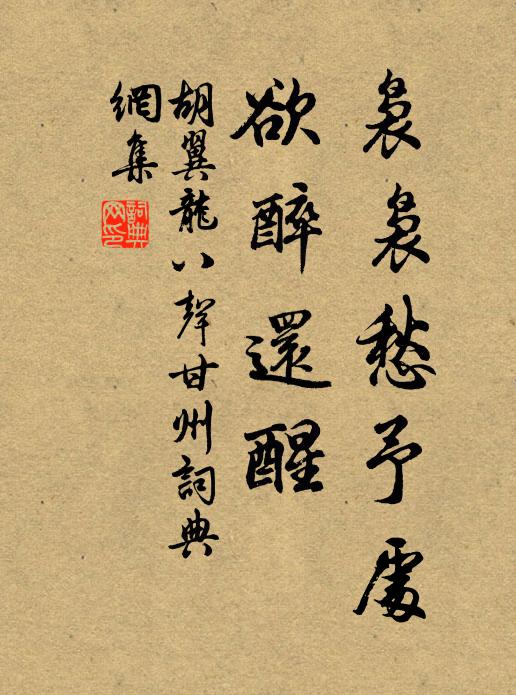 裊裊愁予處
欲醉還醒
胡翼龍八聲甘州詞典
網集
詞典
网印